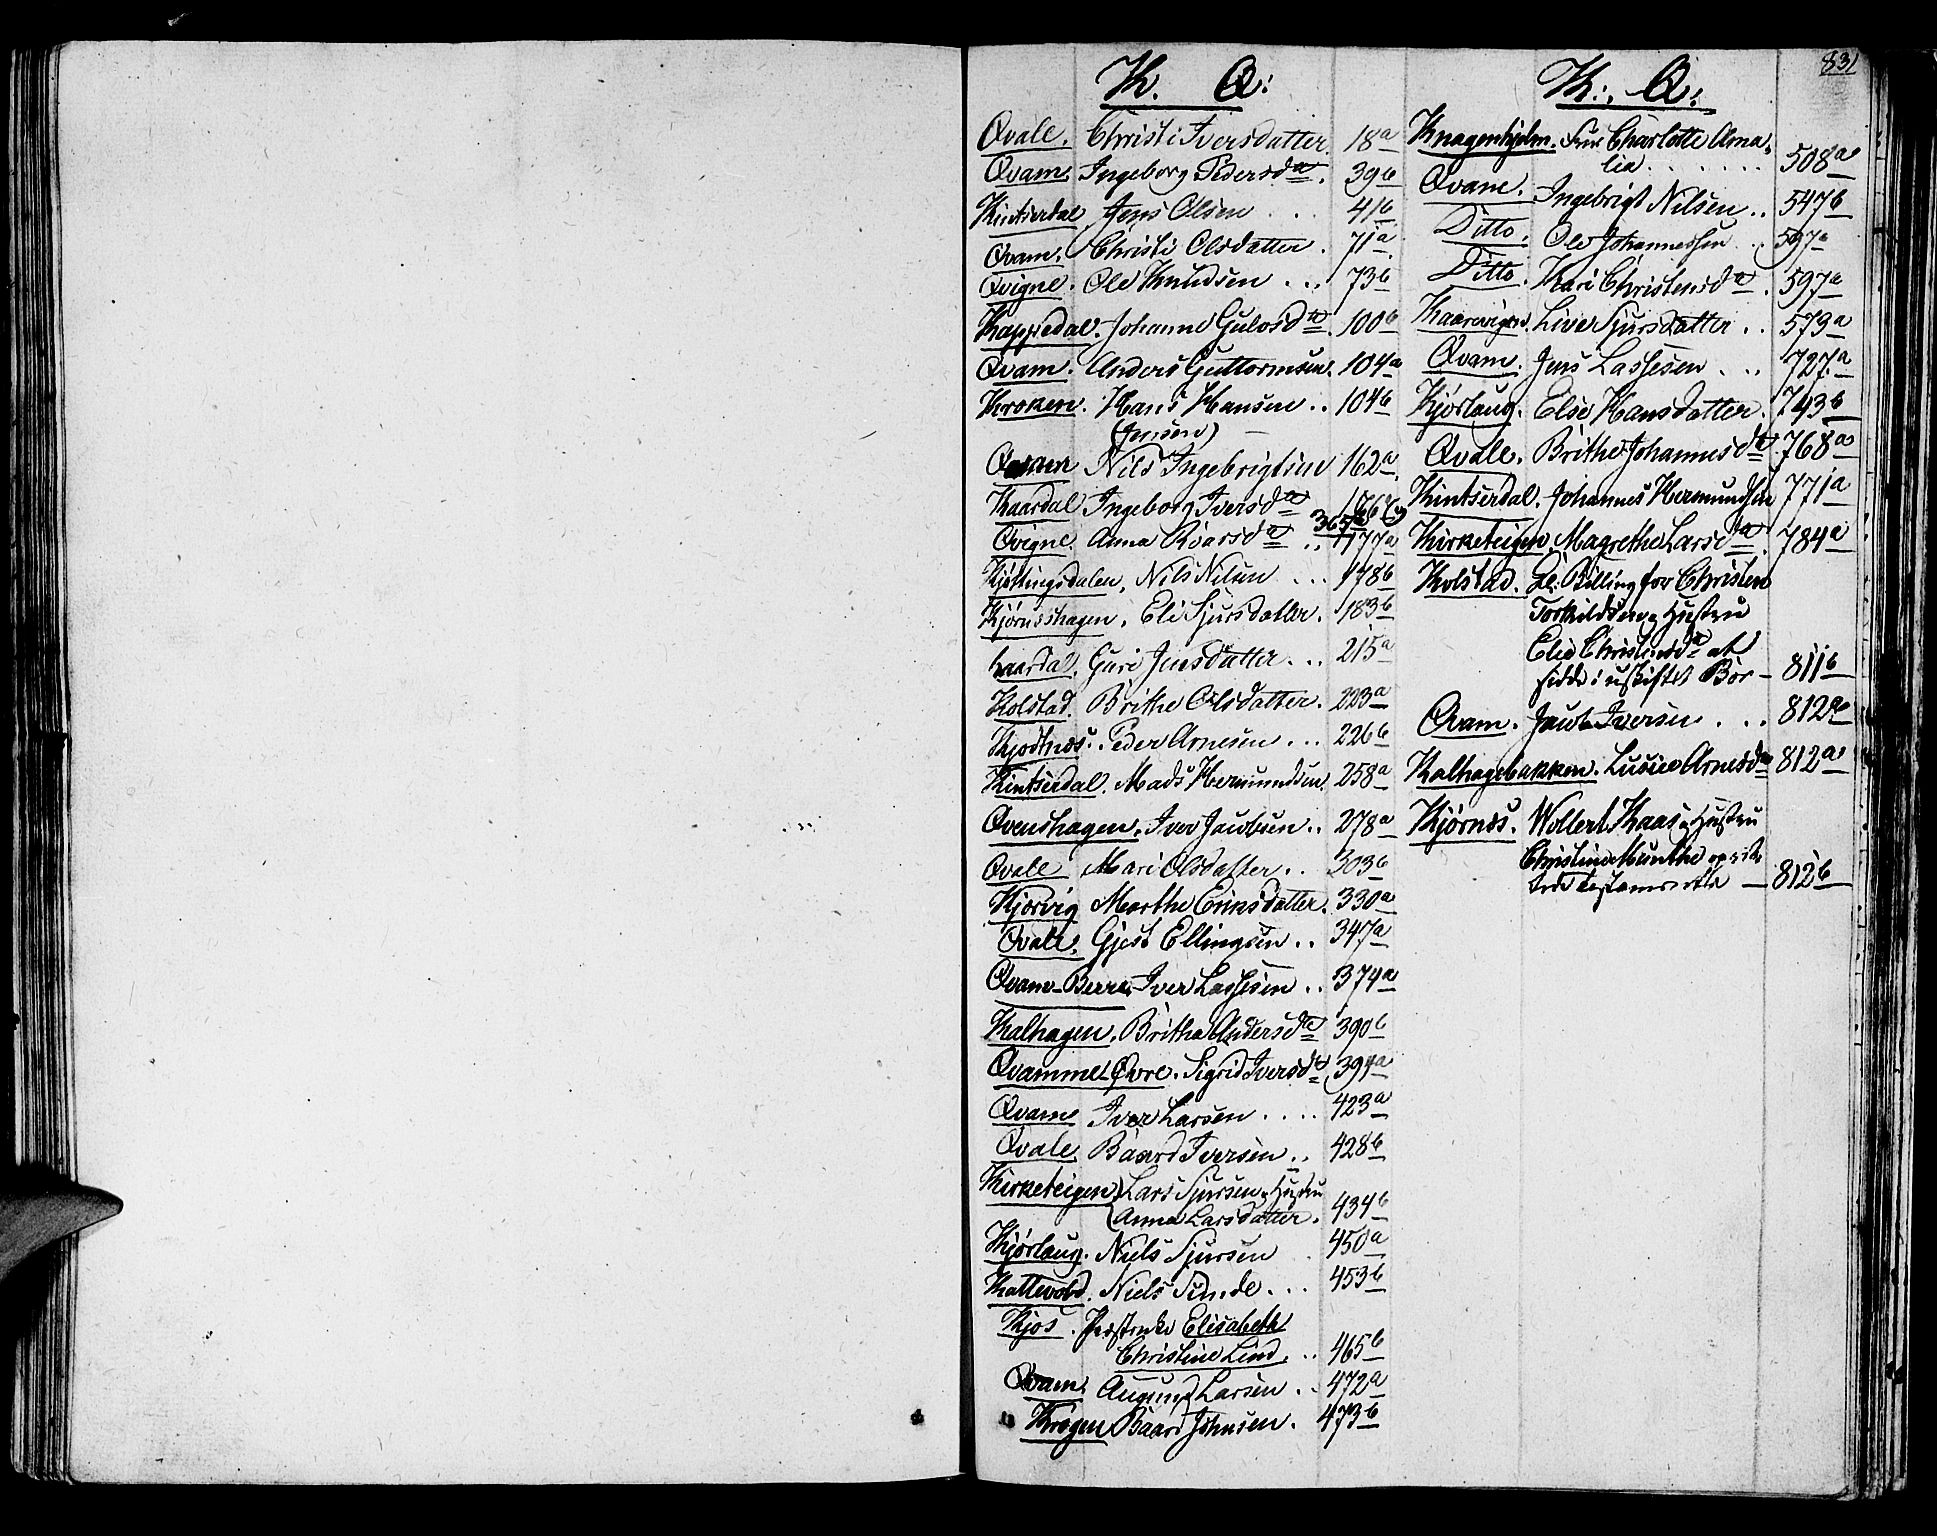 831
K. Q:
Qvale. Christi Iversdatter. 18a
Qvam. Ingeborg Pedersda. 39b
Kintserdal Jens Olsen . . . 41b
Qvam. Christi Olsdatter . 71a
Qvigne. Ole Knudsen . . . 73b
Kappedal. Johanne Gulosda. 100b
Qvam. Anders Guttormsen. 104a
Kroken. Hans Hansen . . 104b
(Jensen)
Qvam Nils Ingebrigtsen 162a
Kaardal Ingeborg Iversda 166b
365a
Qvigne. Anna Roarsda . . 177a
Kjøttingsdalen. Nils Nilsen . . . 178b
Kjørnishagen. Eli Sjursdatter. 183b
Kaardal. Guri Jensdatter . . . 215a
Kolstad. Brithe Olsdatter. 223a
Kjødtnes. Peder Arnesen . . . 226b
Kintserdal. Mads Hermundsen. 258a
Qvenshagen. Iver Jacobsen . . 278a
Qvale Mari Olsdatter . . 303b
Kjørvig Marthe Eriksdatter. 330a
Qvale. Gjest Ellingsen . . 347a
Qvam-Berre. Iver Lassesen . . 374a
Kalhagen. Britha Andersda 390b
Qvamme Øvre. Sigrid Iversda 394a
Qvam Iver Larsen . . . . 423a
Qvale. Baard Iversen . . 428b
Kirketeigen Lars Sjursen og Hustru
Anna Larsdatter. 434b
Kjørlaug. Niels Sjursen . 450a
Kattevold. Niels Sunde . . . 453b
Kjos . Præstenke Elisabeth
Christine Lind. . . 465b
Qvam. Augund Larsen . . 472a
Krogen Baard Johnsen . 473b
K:. Q:
Knagenhjelm. Frue Charlotte Ama-
lia . . . . . . 508a
Qvane. Ingebrigt Nilsen . . 547b
Ditto. Ole Johannessen . . 597a
Ditto. Kari Christensda . 597a
Kaarevigen. Live Sjursdatter . . 573a
Qvam. Jens Lassesen . . . 727a
Kjørlaug. Else Hansdatter. 743b
Qvale. Brithe Johannesda 768a
Kintserdal. Johannes Hermundsen 771a
Kirketeigen. Magrethe Larsda. 784a
Kolstad. Bl: Billing for Christen
Torkildsen og Hustru
Elie Christensda at
sidde i uskiftet Boe - 811b
Qvam. Jacob Iversen . . . 812a
Kalhagebakken. Lucie Arnesda 812a
Kjørnes. Wollert Kaas og Hustru
Christine Munthe oprette
testamente - 812b